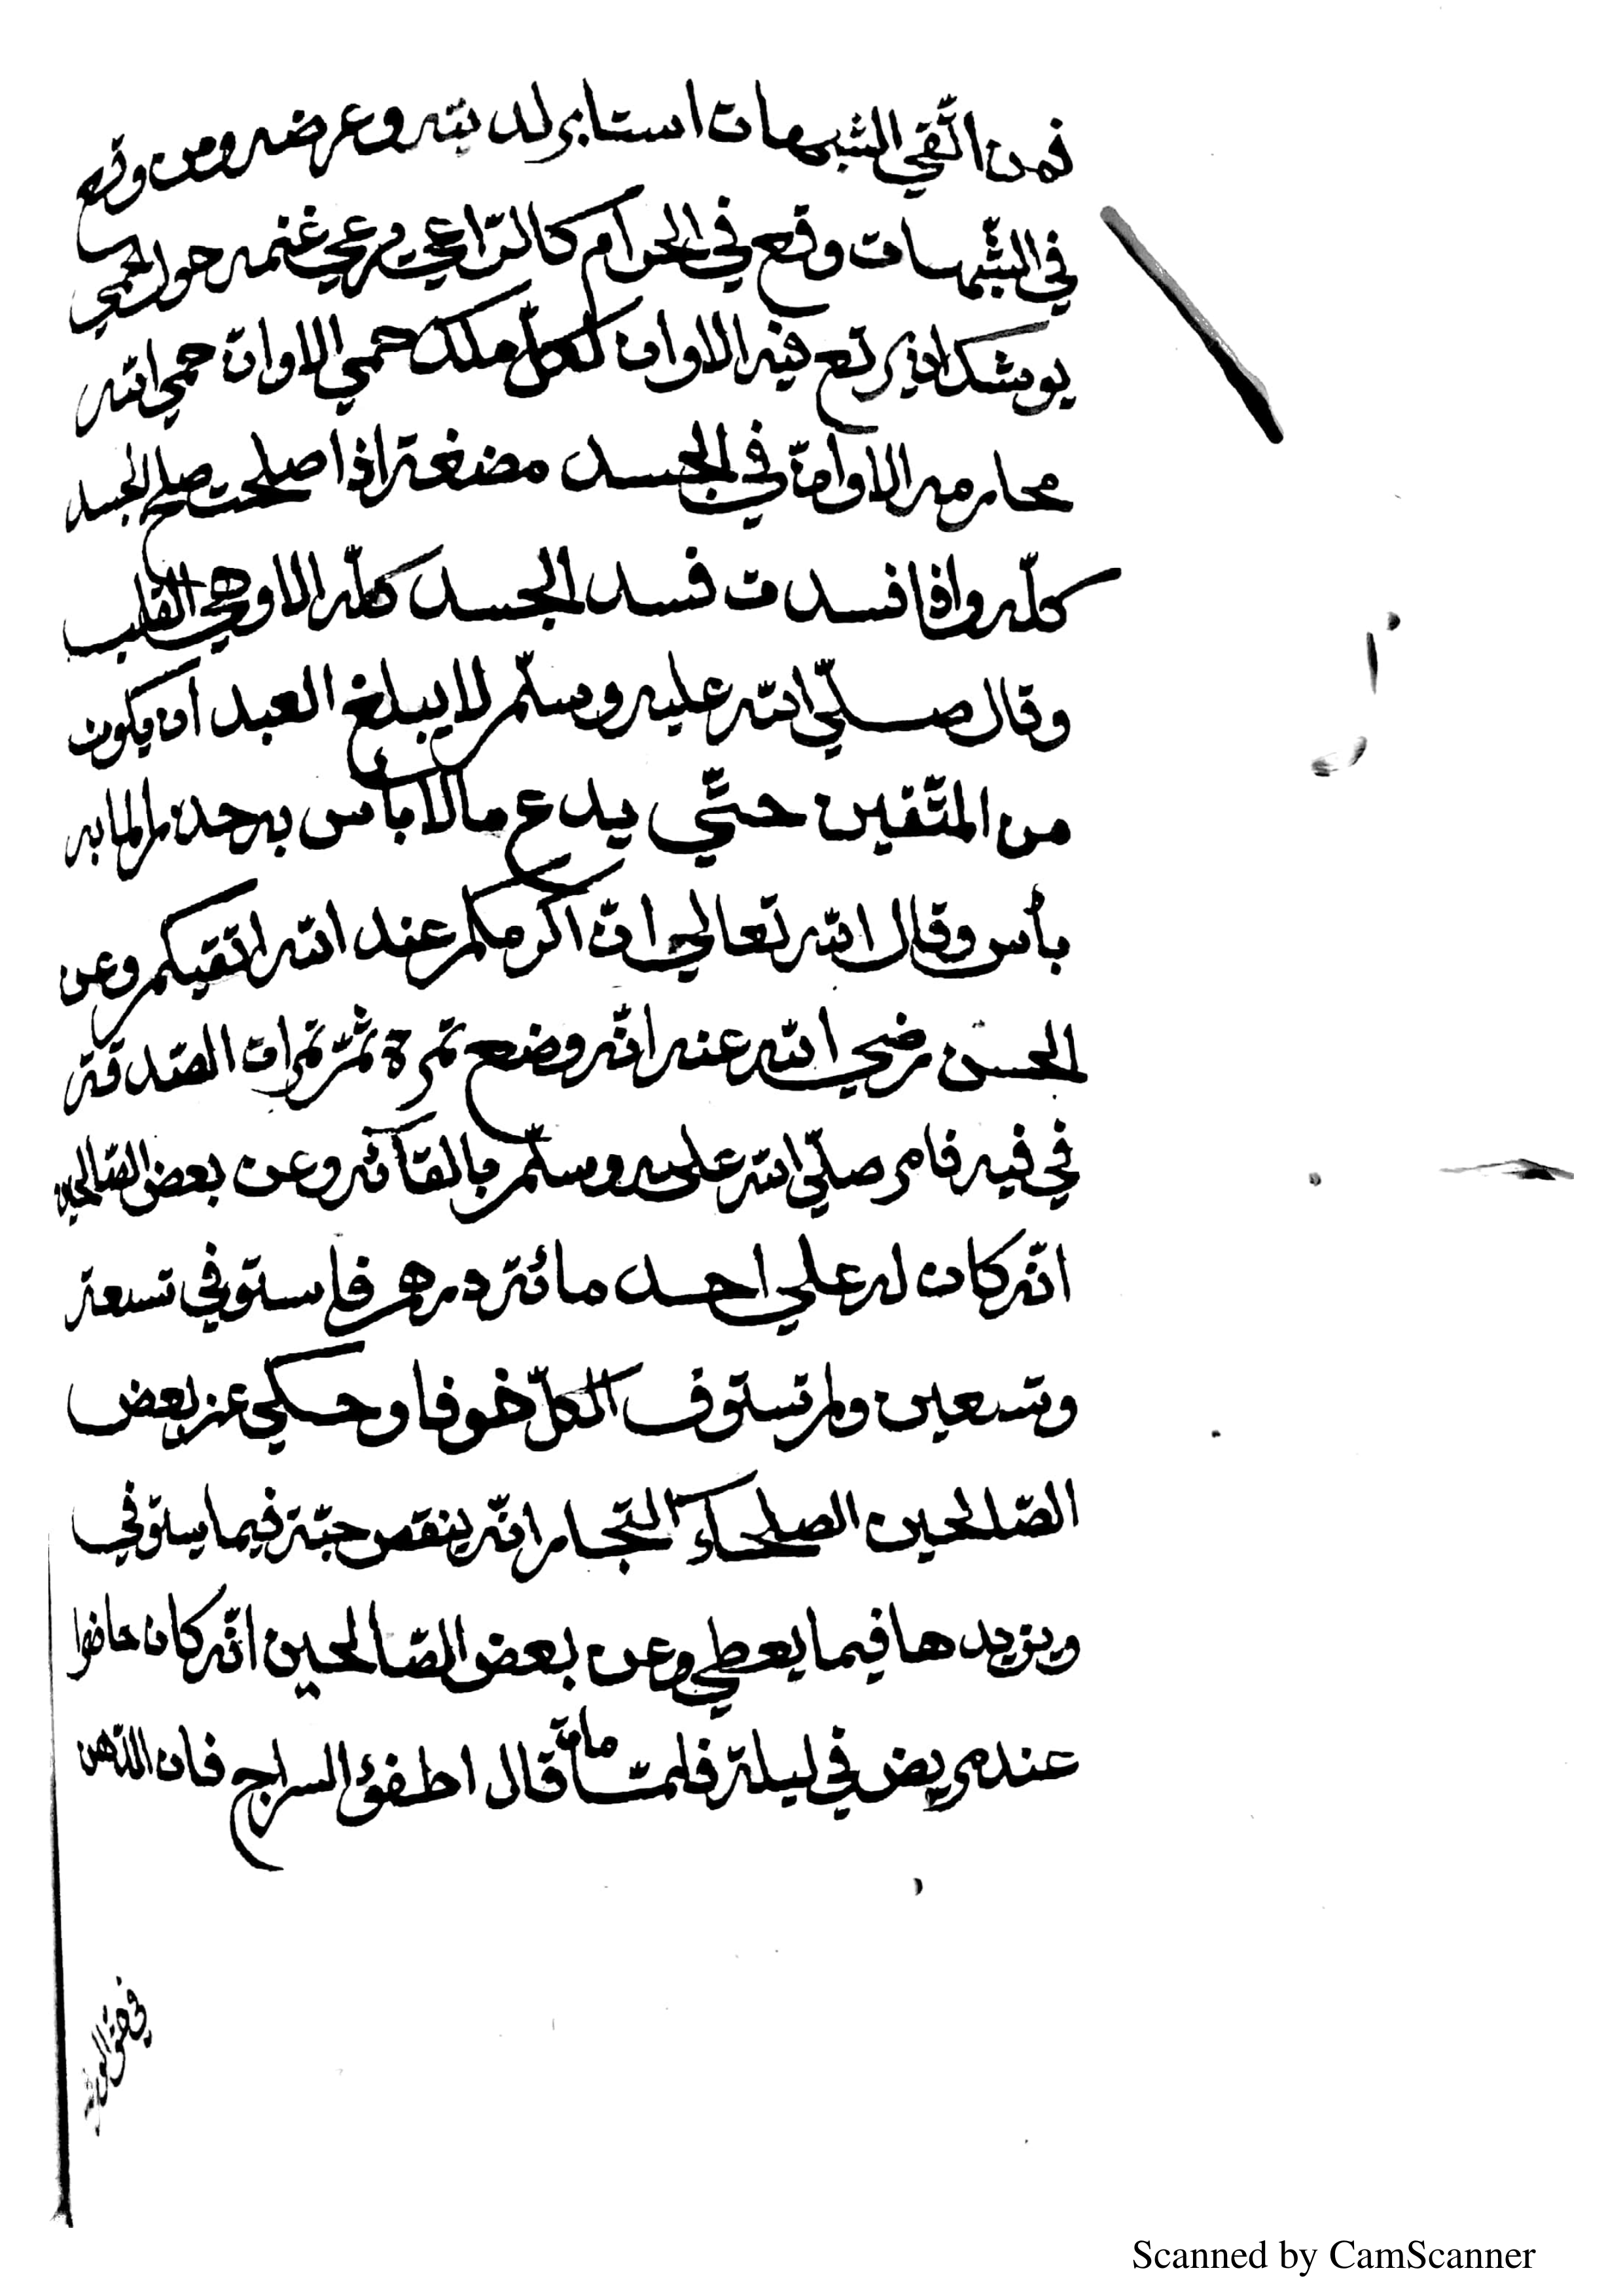 فمن اتّقي الشبهات استابر لدينه وعرضه ومن وقع
في الشّبهات وقع في الحرام كالرّاعي يرعي غنمه حول الحمي
يوشك ان يرتع فيه الا وان لكلّ ملك حمي الا وان حمي الله
محارمه الا وانّ في الجسد مضغة اذا صلحت صلح الجسد
كلّه واذا فسدت فسد الجسد كلّه الا وهي القلب
وقال صلّي الله عليه وسلّم لا يبلغ العبد ان يكون
من المتّقين حتّي يدع ما لا بأس به حذرا لما به
بأس وقال الله تعالي انّ اكرمكم عند الله اتقيكم وعن
الحسن رضي الله عنه انّه وضع تمرة تمّر تمرات الصّدقة
في فيه فامر صلّي الله عليه وسلّم بالقائه وعن بعض الصّالحين
انّه كان له علي احد مائة درهم فاستوفي تسعة
وتسعين ولم تستوف الكلّ خوفا وحكي عن بعض
الصّلحين الصلحاء التّجار انّه ينقص حبّة فيما يستوفي
ويزيدها فيما يعطي وعن بعض الصّالحين انّه كان حاضرا
عند مريض في ليلة فلمّا مات قال اطفؤ السراج فان الدّهن
Scanned by CamScanner